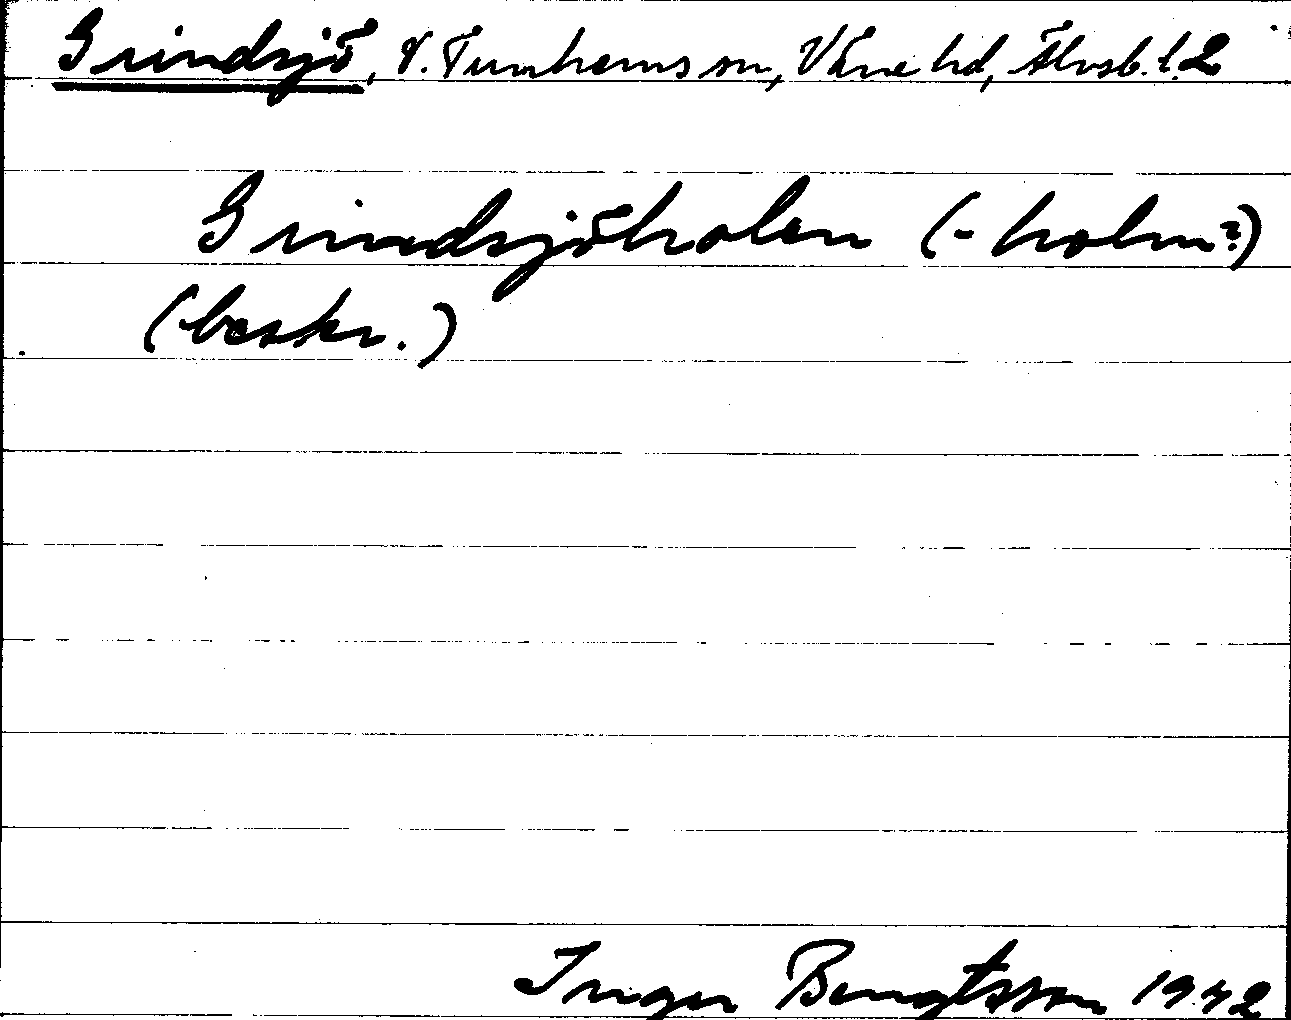 Grindsjö, V. Tunhems sn, Väne hd, Älvsb. l. 2
Grindsjöholen (-holm?)
(beskr.)
Inger Bengtsson 1942